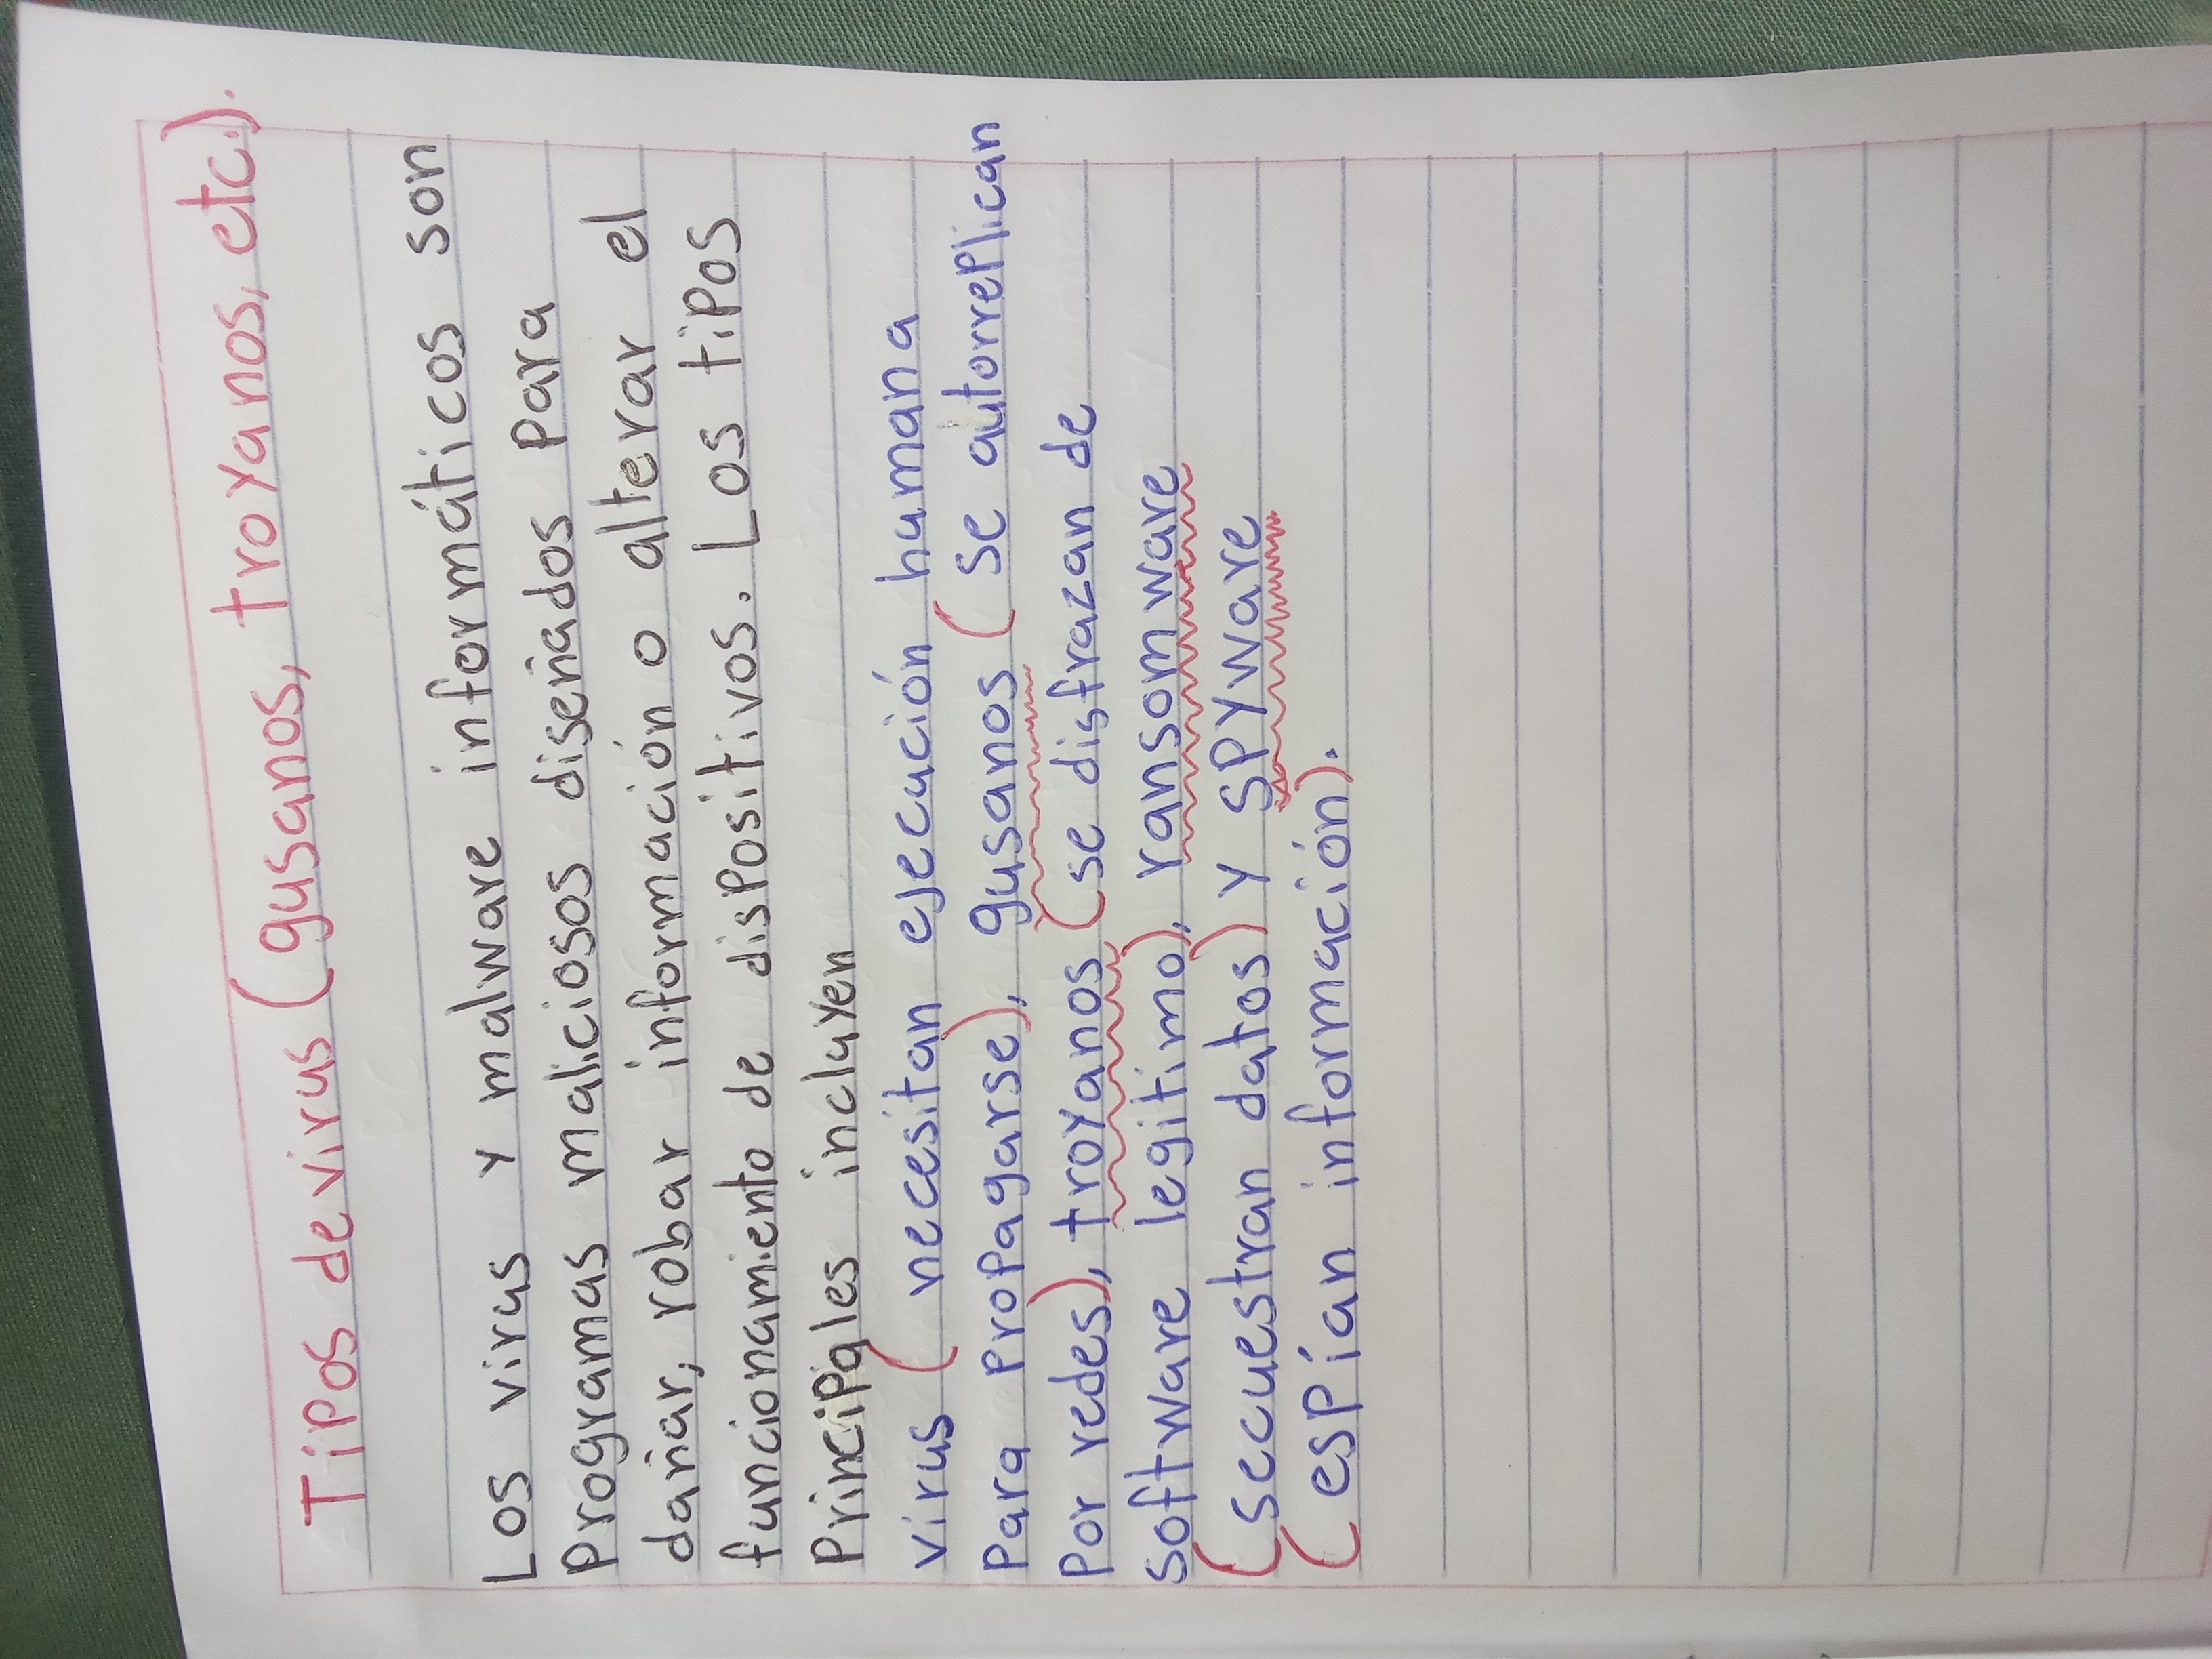 Tipos de virus (gusanos, troyanos, etc.).
Los virus y malware informáticos son
programas maliciosos diseñados para
dañar, robar información o alterar el
funcionamiento de dispositivos. Los tipos
principales incluyen
virus (necesitan ejecución humana
para propagarse), gusanos (se autorreplican
por redes), troyanos (se disfrazan de
software legitimo), ransomware
(secuestran datos) y spyware
(espían información).